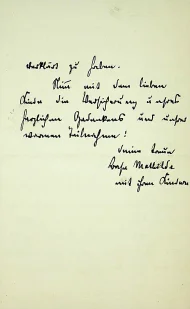 verklärt zu haben.
Nun mit dem lieben
Kinde die Versicherung unsres
herzlichen Gedenkens und unsrer
warmen Teilnahme!
Deine treue
Mathilde
mit ihren Kindern